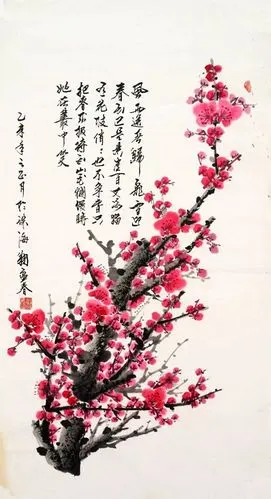 風雨送春歸飛雪迎
春到已是悬崖百丈冰猶
有花枝俏：也不争春只
把春來報待到山花爛漫時
她在叢中笑
年之正月於珠海